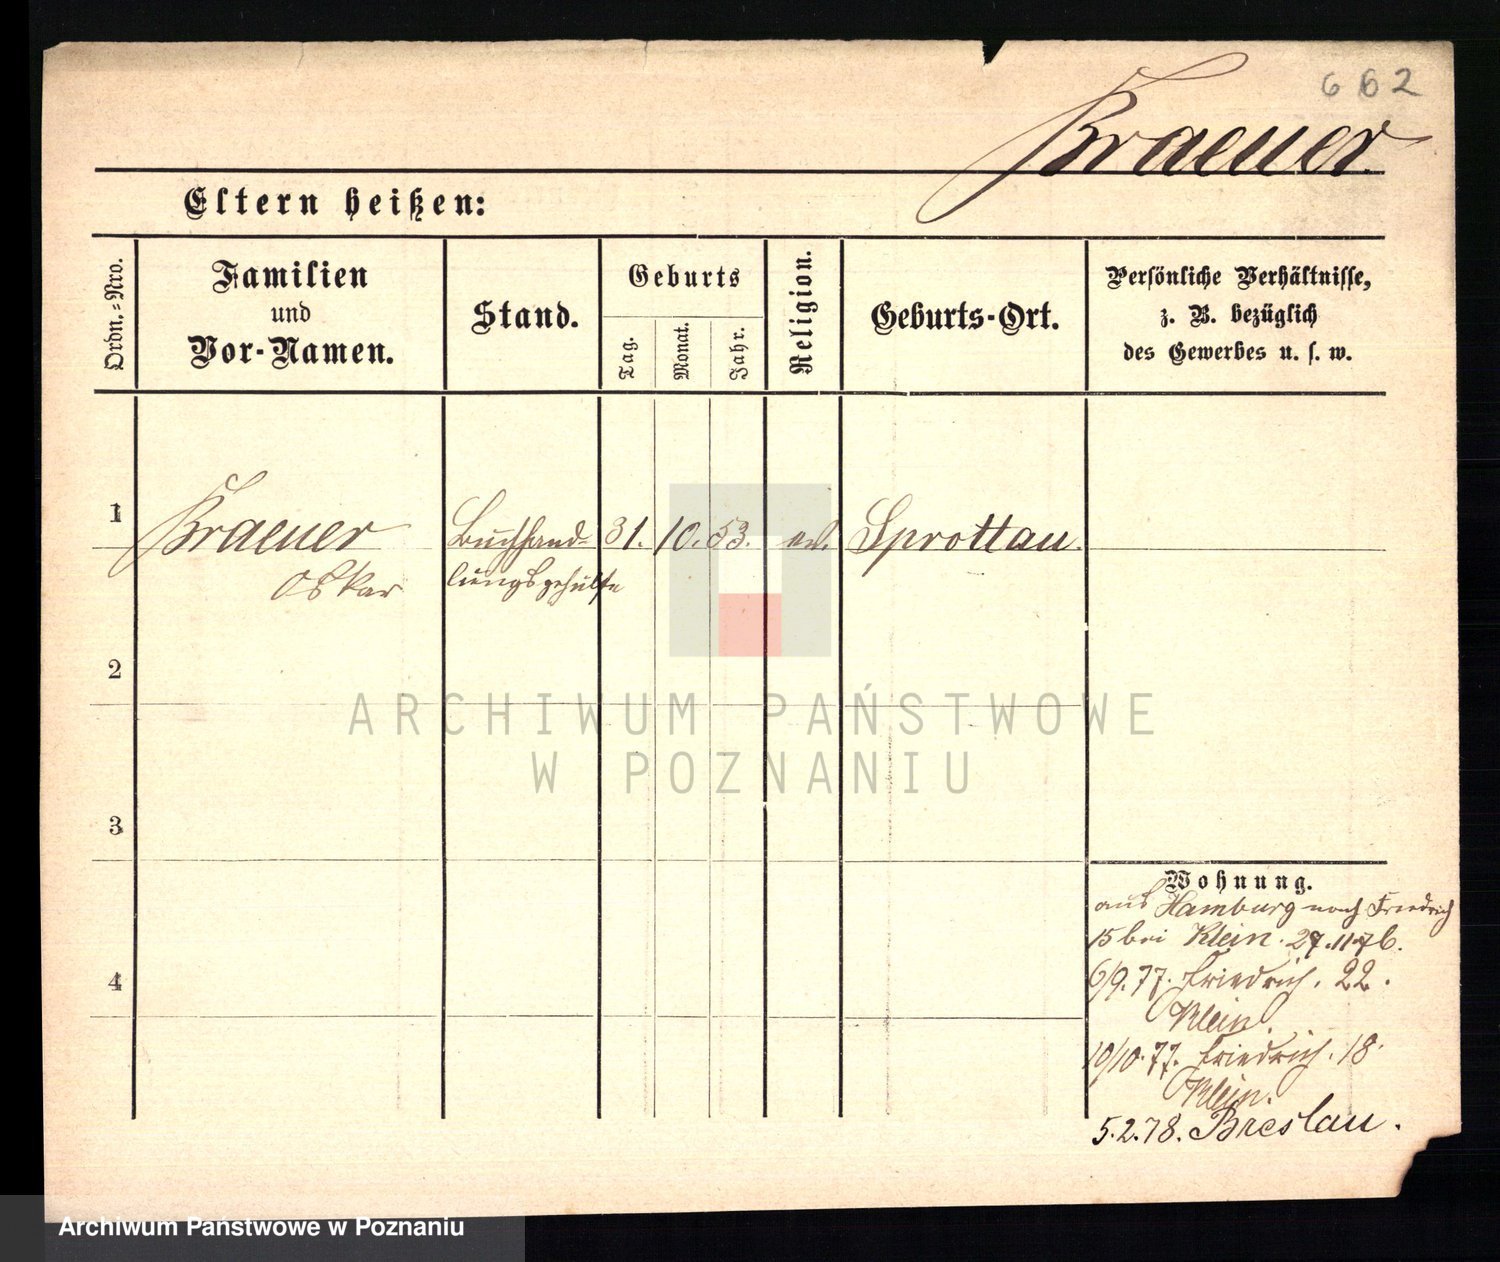 662
Kraeuer.
Eltern heißen:
Ordn.-Nro.
Familien
und
Vor-Namen.
Stand.
Geburts
Tag.
Monat.
Jahr.
Religion.
Geburts-Ort.
Persönliche Verhältnisse,
z. B. bezüglich
des Gewerbes u. s. w.
1
Kraeuer
Oskar
Buchhand-
lungsgehülfe
31. 10. 53. ev. Sprottau.
2
3
4
Wohnung.
aus Hamburg nach Friedrich
15 bei Klein. 27.11.76.
6/9.77. Friedrich. 22.
Klein.
10/10.77. Friedrich. 18.
Klein.
5.2.78. Breslau.
ARCHIWUM PAŃSTWOWE
W POZNANIU
Archiwum Państwowe w Poznaniu